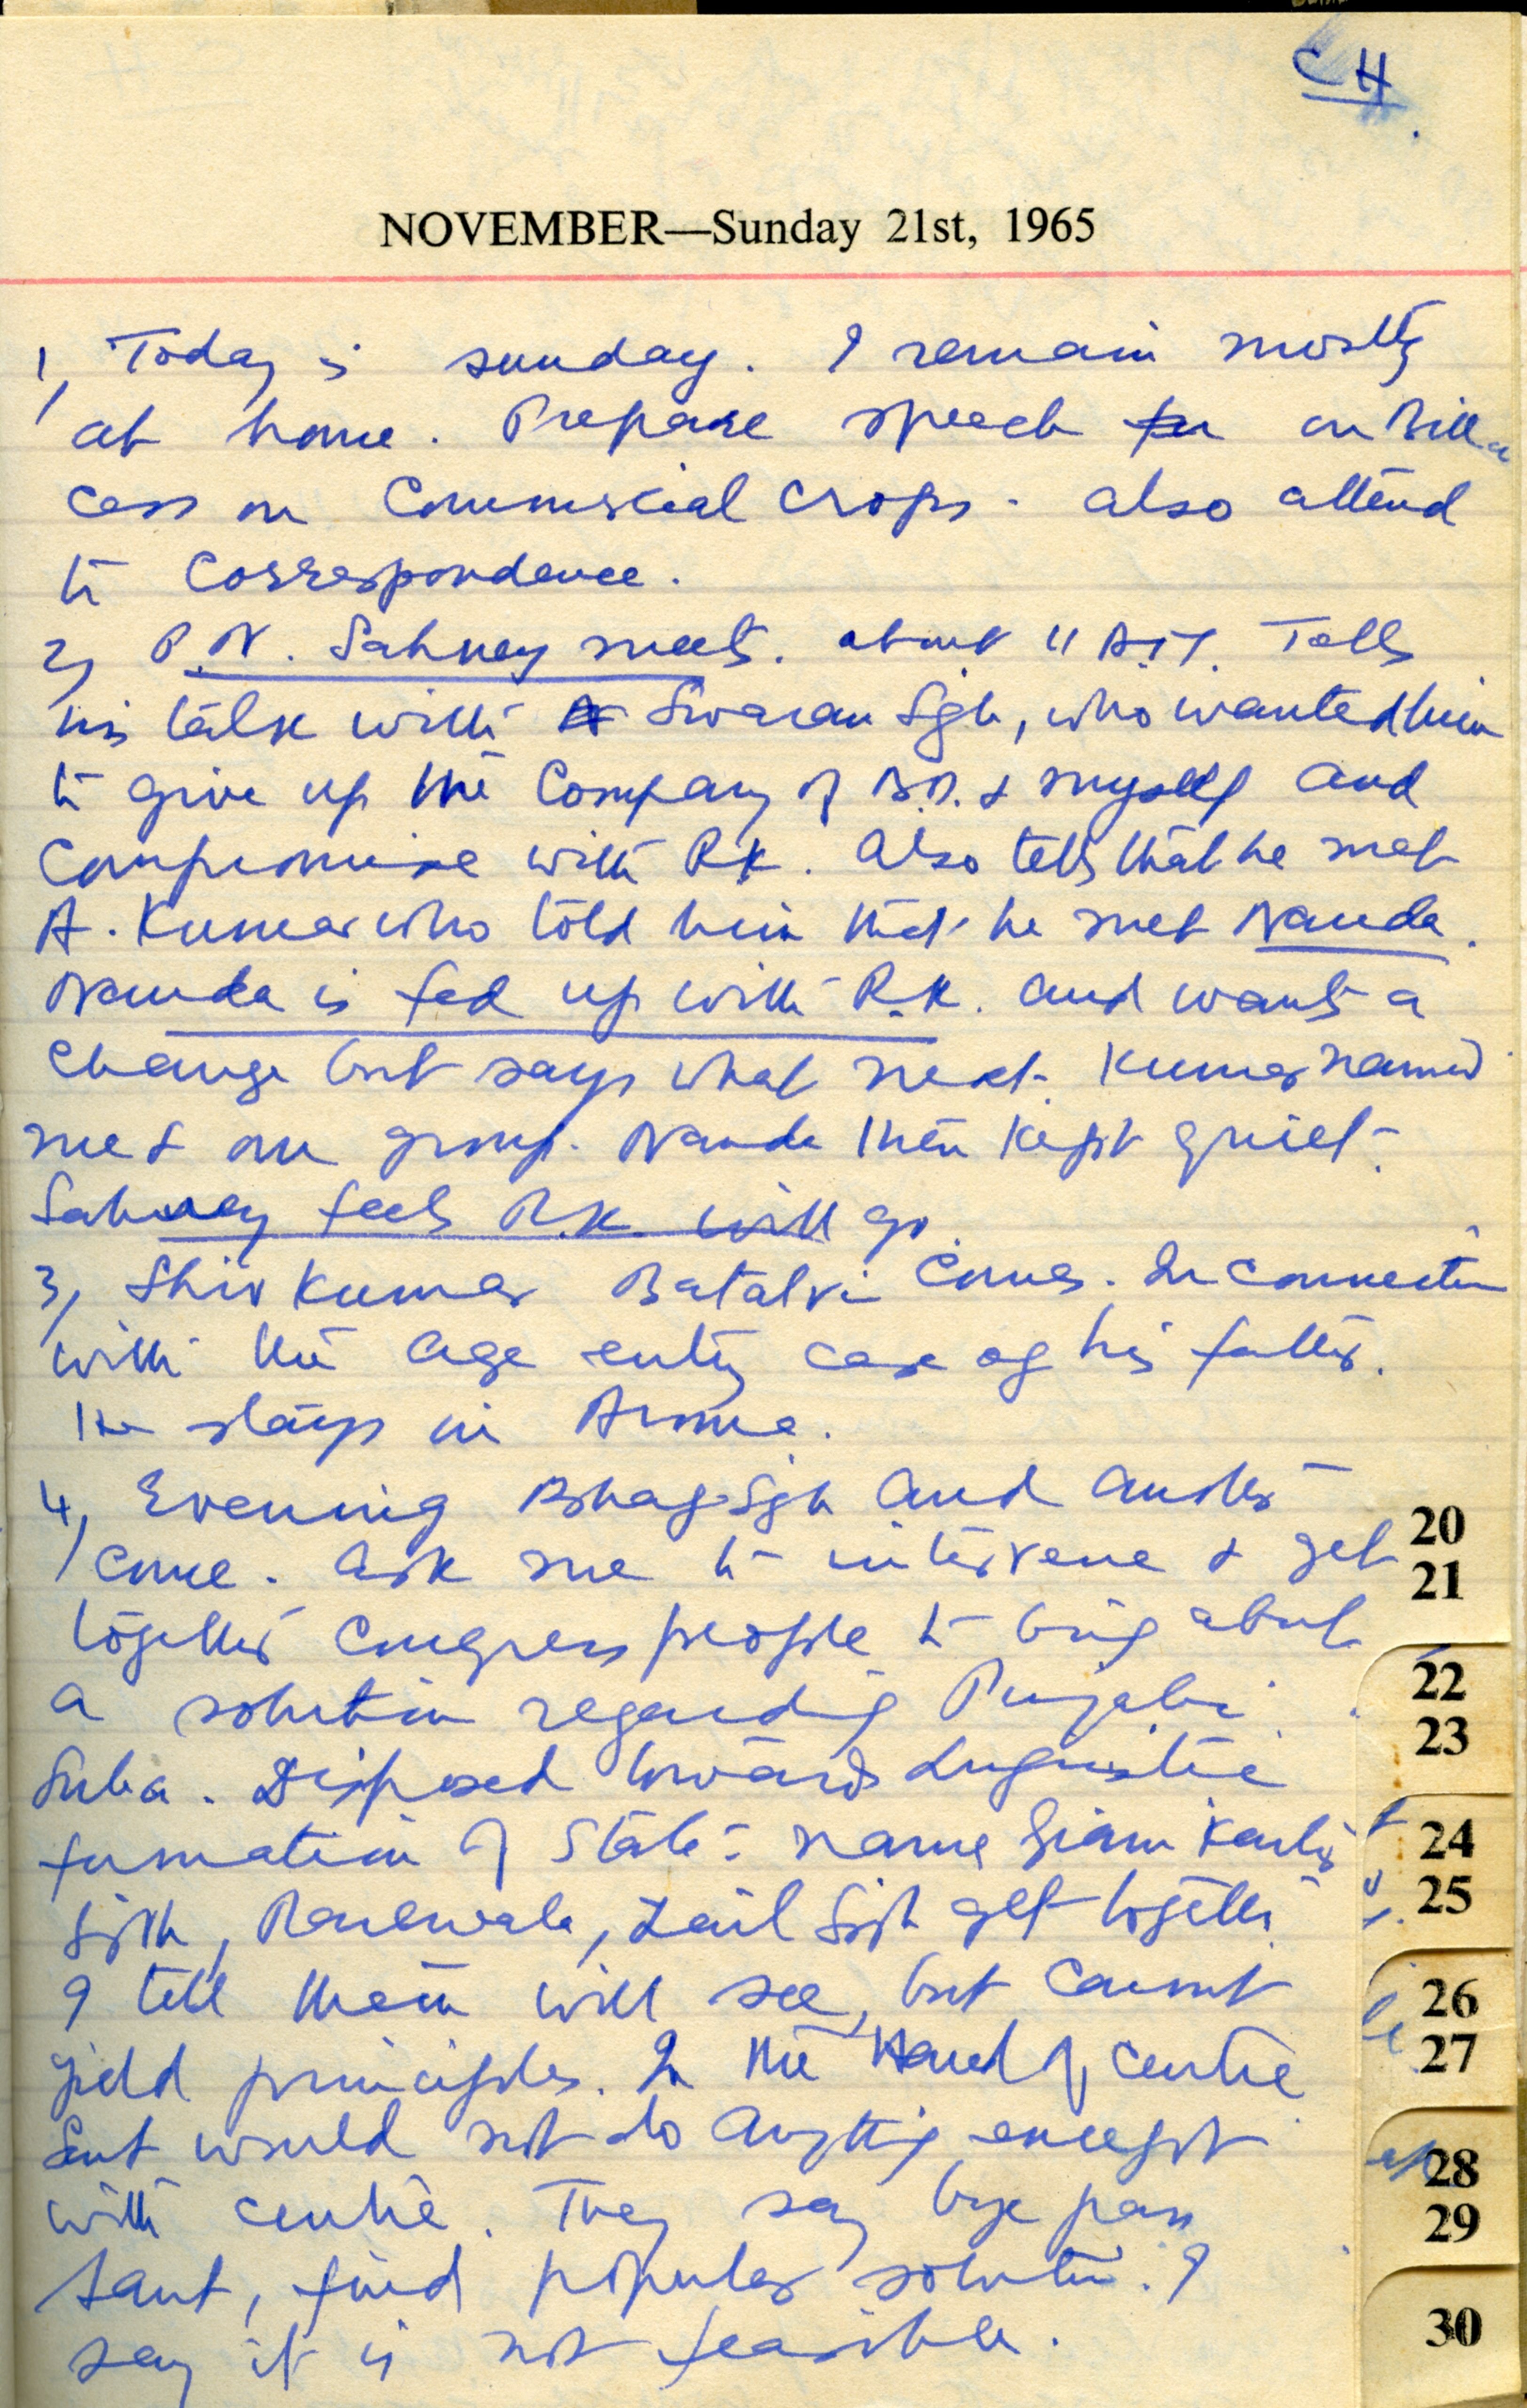 CH
NOVEMBER—Sunday 21st, 1965
1, Today is sunday. I remain mostly
at home. Prepare speech on Bill
Cess on Commercial Crops. also attend
to Correspondence.
2, P.N. Sahney meets. about 11 A.M. Tells
his talk with Swaran Sgh, who wanted him
to give up the Company of B.D. & myself and
Compromise with RK. also tells that he met
A. Kumar who told him that he met Nanda.
Nanda is fed up with R.K. and wants a
change but says what next. Kumar named
me & our group. Nanda then kept quiet.
Sahney feels R.K. will go.
3, Shiv Kumar Batalvi Comes. In connection
with the age entry case of his father.
He stays in Annexe.
4, Evening Bhag Sgh and another
come. ask me to intervene & get
together Congress people to bring about
a solution regarding Punjabi
Suba. Disposed towards Linguistic
formation of State. name Giani Kartar
Sigh, Rarewala, Zail Sigh get together.
I tell them will see, but cannot
yield principles. In the Hand of Centre
Sant would not do anything except
with centre. They say bye pass
Sant, find popular solution. I
say it is not feasible.
20
21
22
23
24
25
26
27
28
29
30